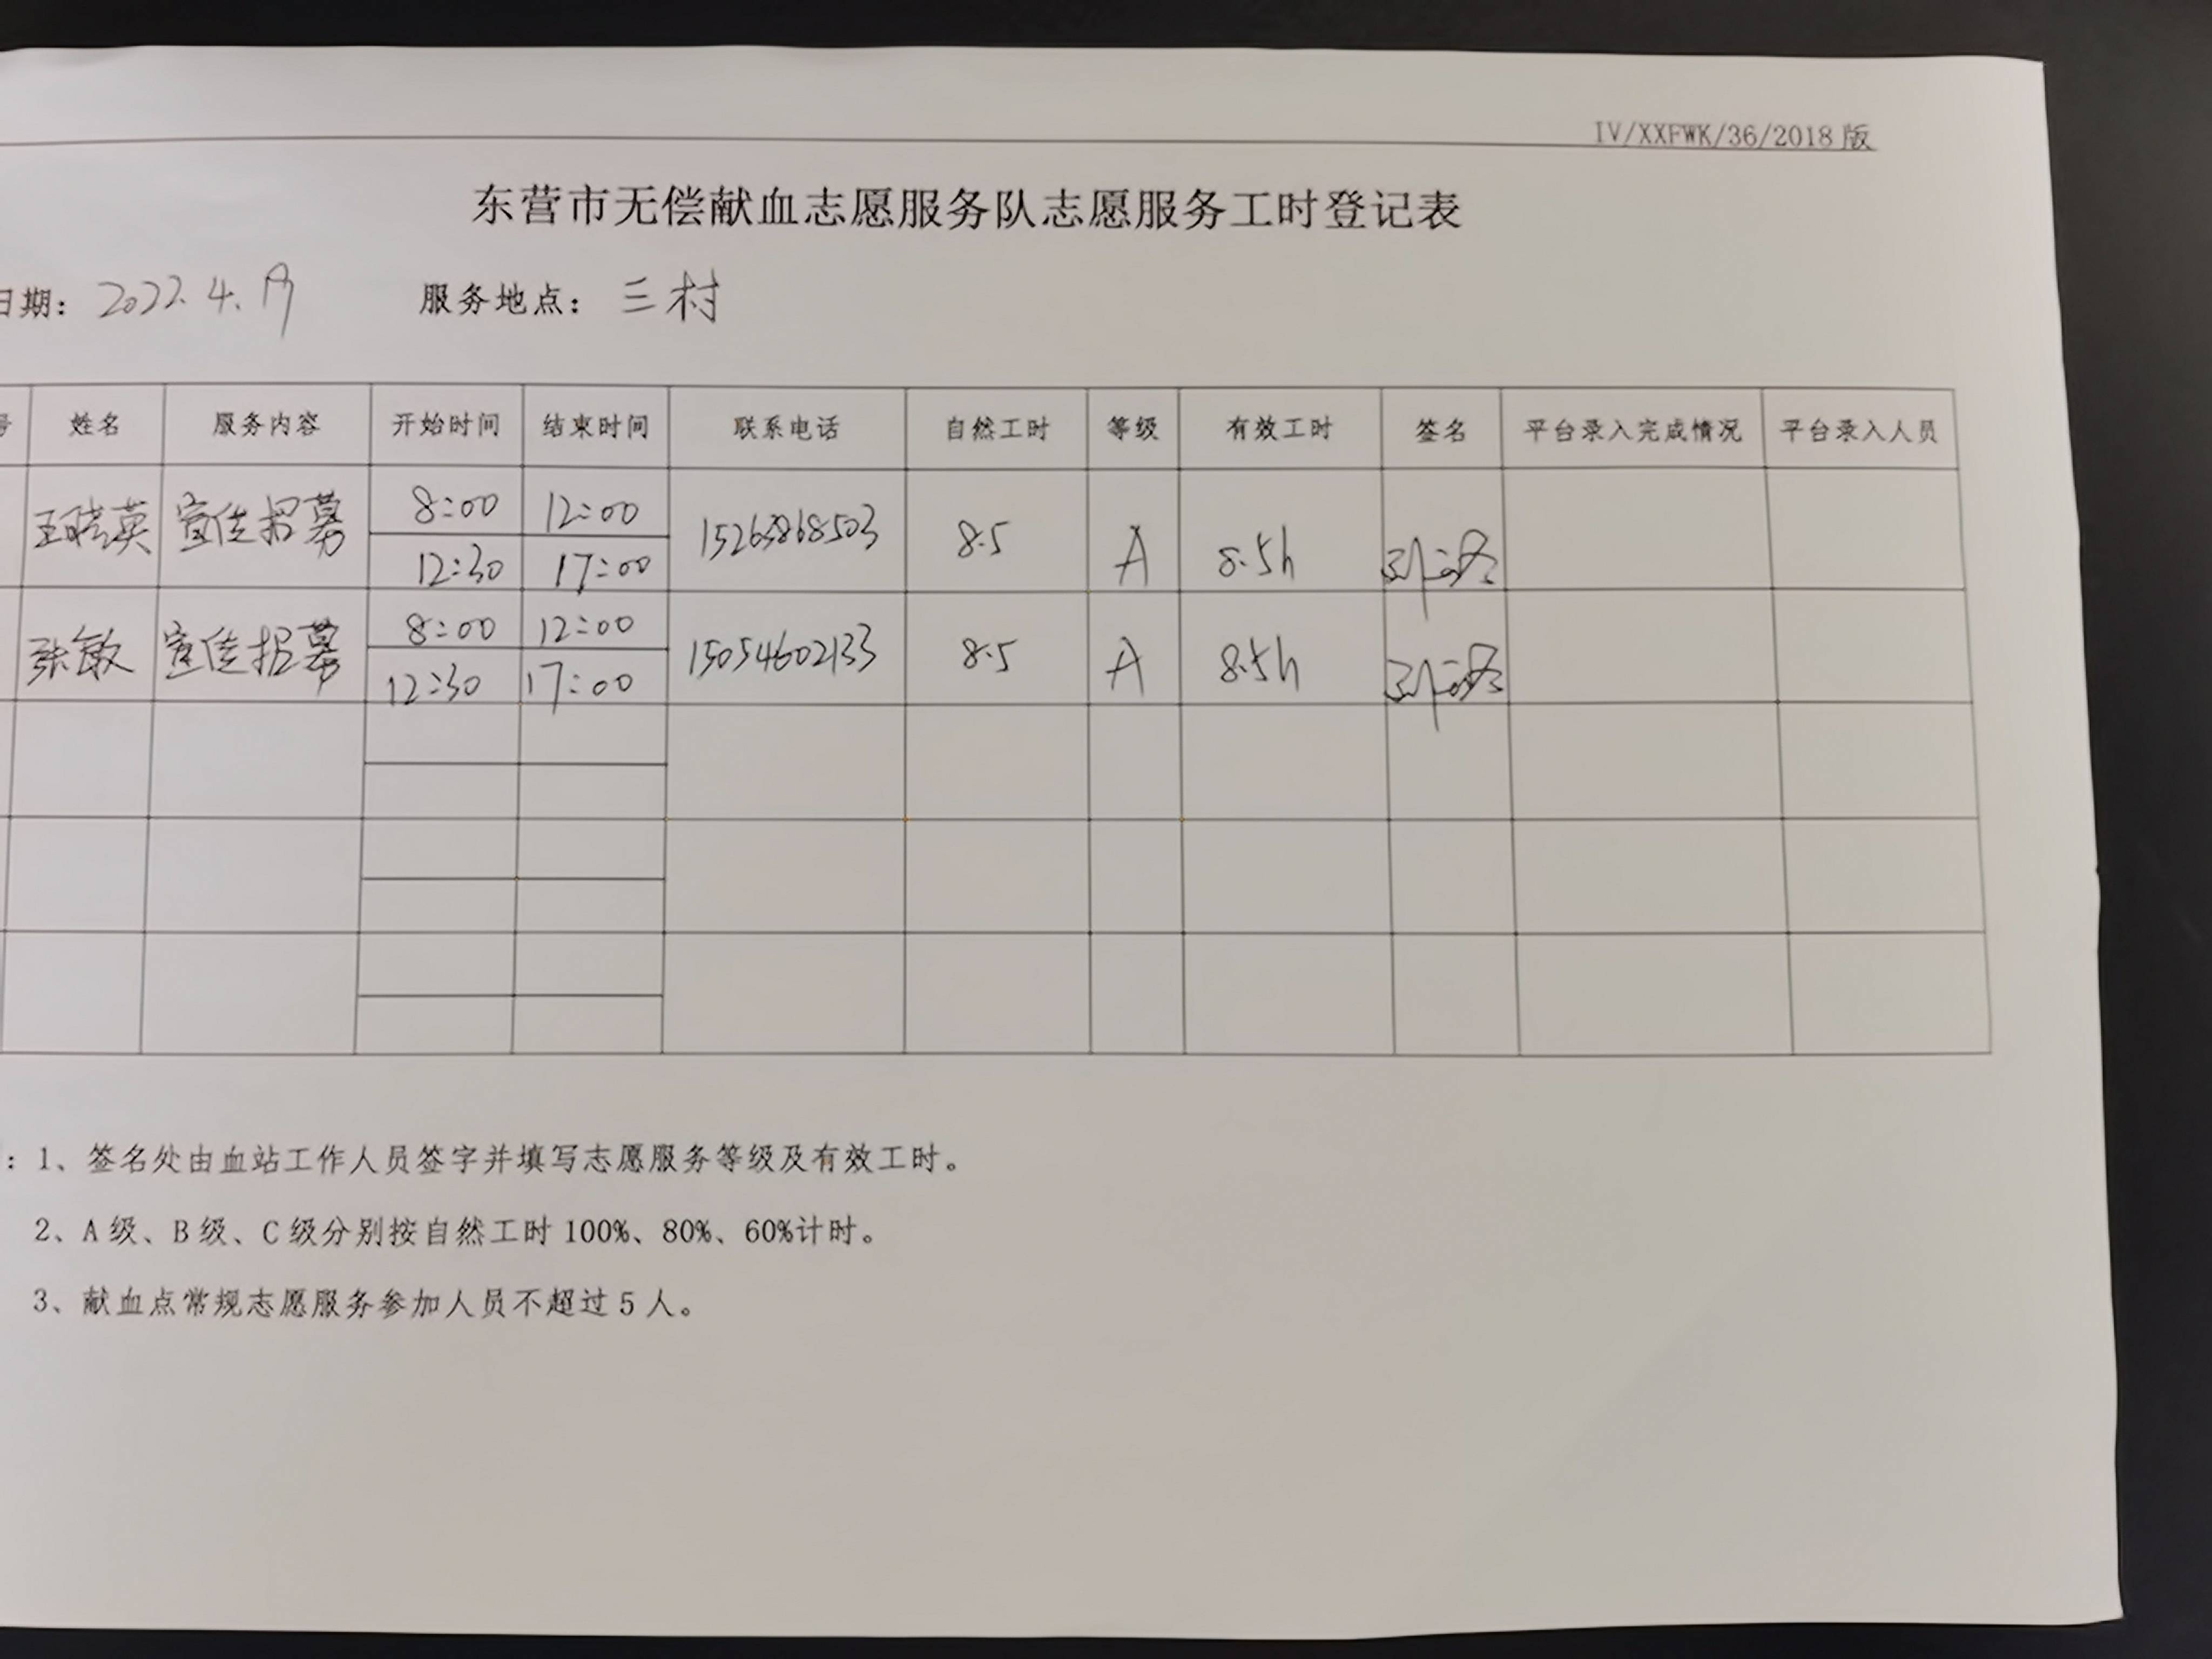 IV/XXFWK/36/2018版
东营市无偿献血志愿服务队志愿服务工时登记表
日期： 2022.4. 服务地点：三村
号 姓名 服务内容 开始时间 结束时间 联系电话 自然工时 等级 有效工时 签名 平台录入完成情况 平台录入人员
王晓英 宣传招募 8:00 12:00 15263868503 8.5 A 8.5h
12:30 17:00
张敏 宣传招募 8:00 12:00 15054602133 8.5 A 8.5h
12:30 17:00
：1、签名处由血站工作人员签字并填写志愿服务等级及有效工时。
2、A级、B级、C级分别按自然工时100%、80%、60%计时。
3、献血点常规志愿服务参加人员不超过5人。